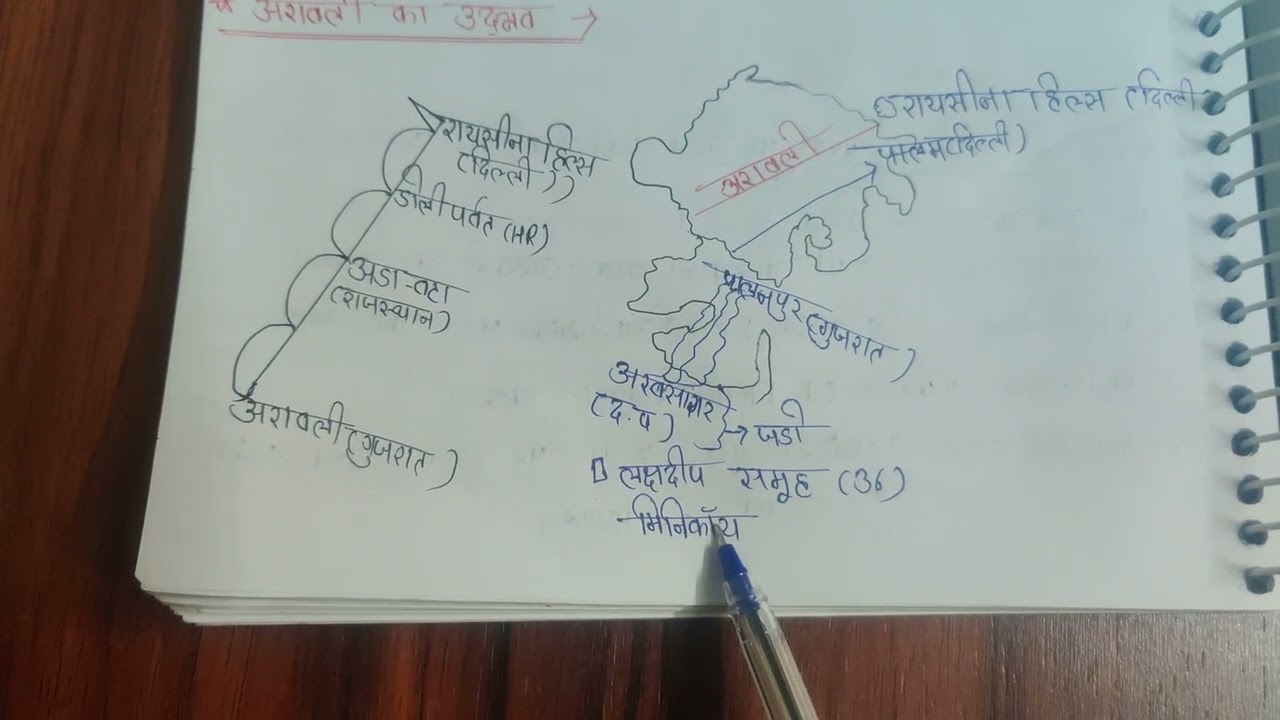 * अरावली का उद्भव →
रायसीना हिल्स
(दिल्ली))
डोली पर्वत (HR)
अडा-तटा
(राजस्थान)
अरावली (गुजरात)
रायसीना हिल्स (दिल्ली
पालम (दिल्ली)
अरावली
पालनपुर (गुजरात)
अरबसागर
(द.प)
→ जडो
लक्षदीप समूह (36)
मिनिकॉय